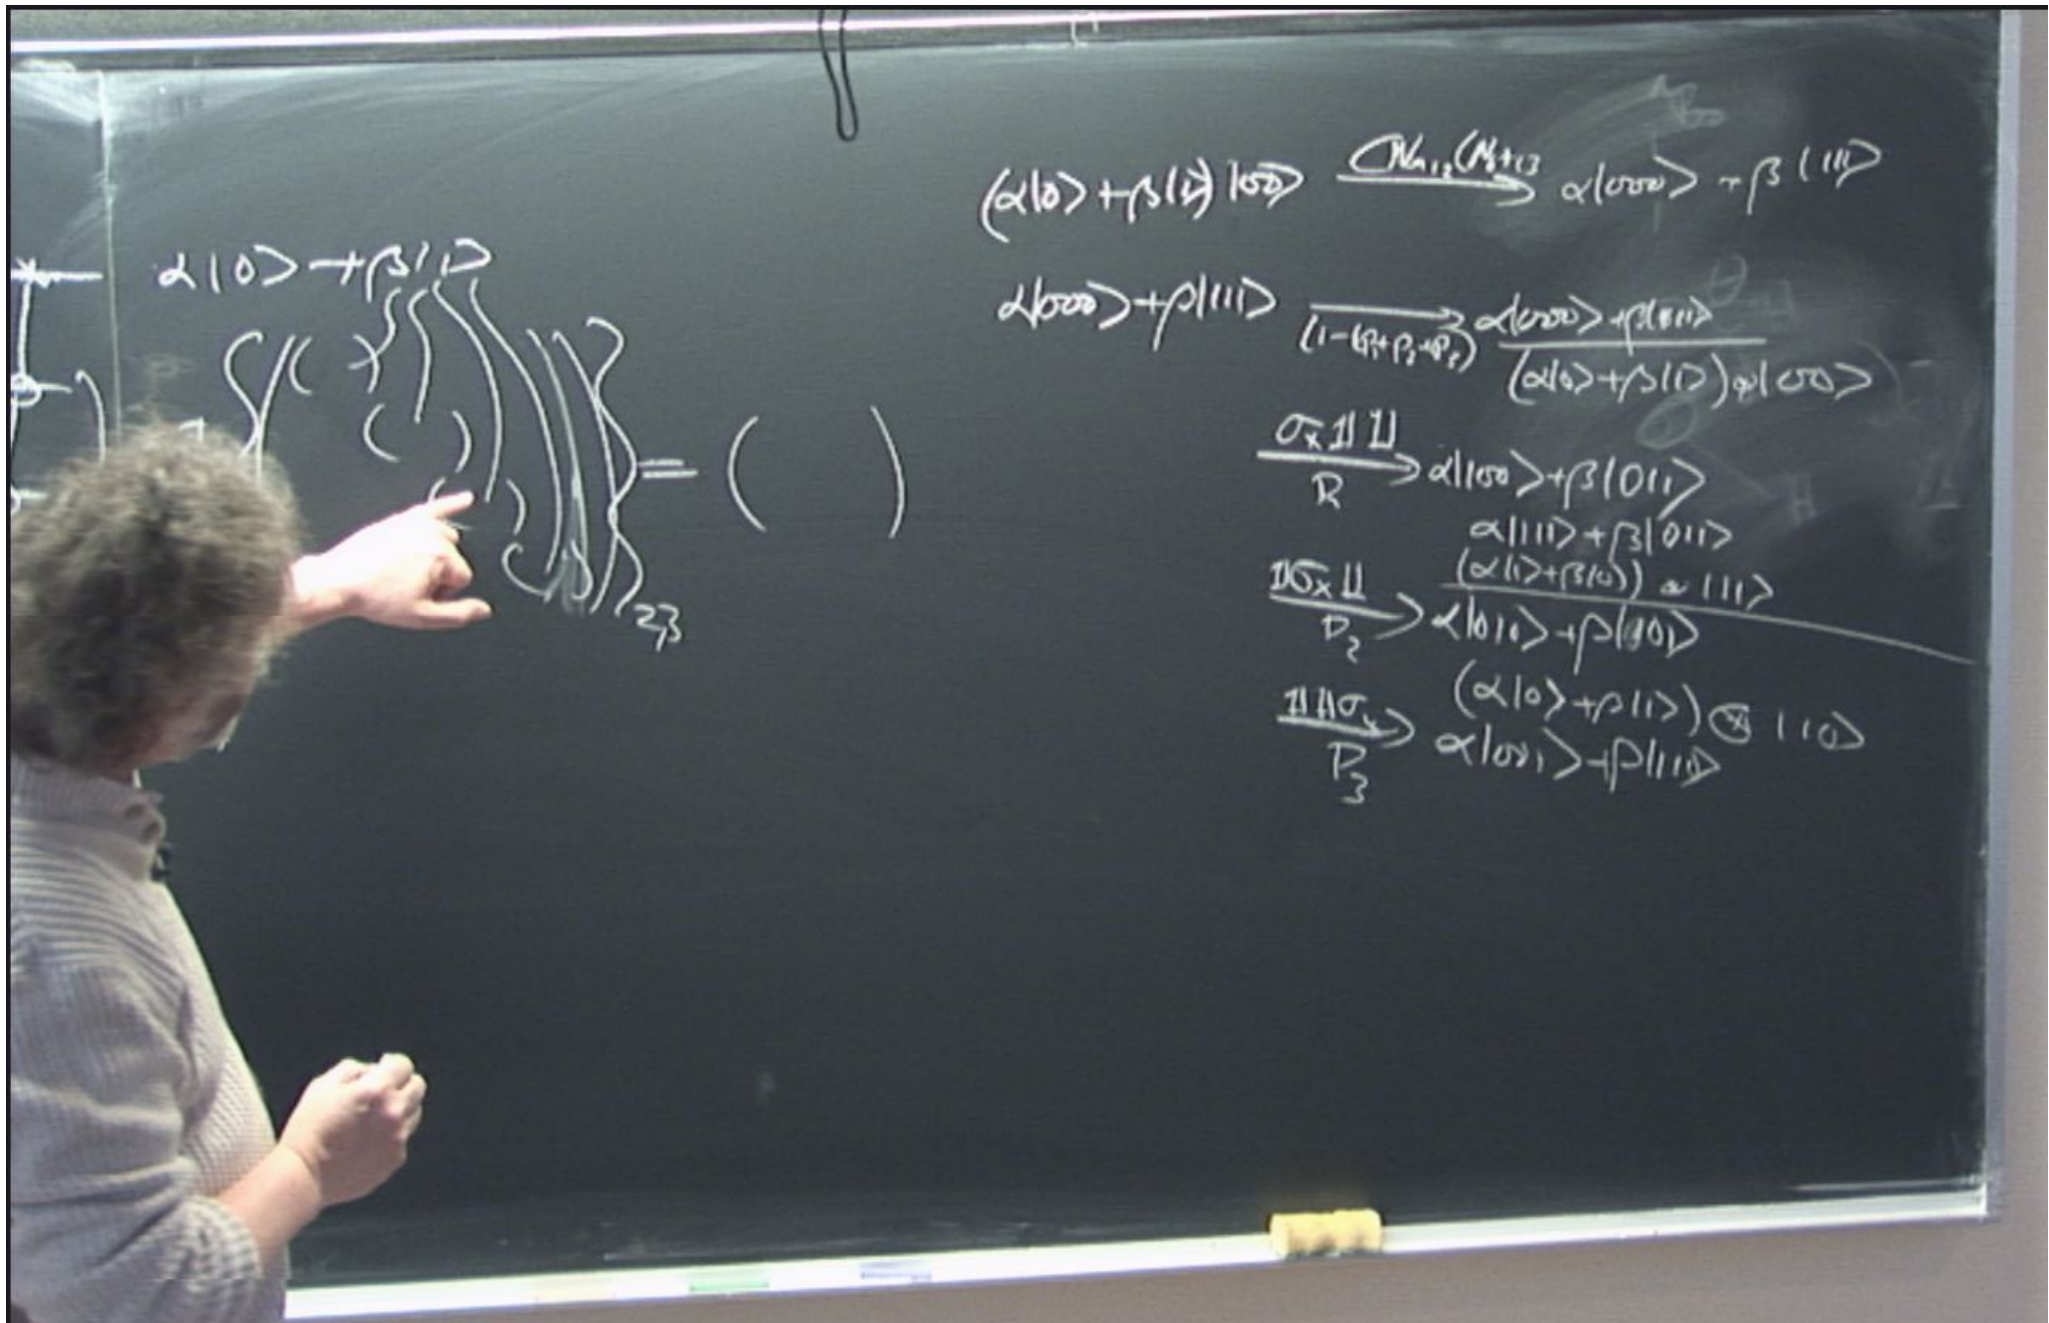 α|0> + β|1>
( )
( )
( )
( )
2,3
= ( )
(α|0> + β|1>) |00> → α|000> + β|111>
α|000> + β|111> → (1-(p₁+p₂+p₃)) α|000> + β|111>
(α|0> + β|1>) ⊗ |00>
σₓ 𝟙 𝟙 → α|100> + β|011>
α|111> + β|011>
(α|1> + β|0>) ⊗ |11>
𝟙 σₓ 𝟙 → P₂ α|010> + β|101>
(α|0> + β|1>) ⊗ |10>
𝟙 𝟙 σₓ → P₃ α|001> + β|110>